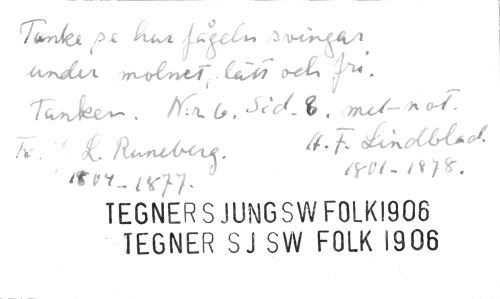 Tanke, se hur fågeln svingar
under molnet, lätt och fri.
Tanken. N:r 6. Sid. 8. met-not.
L. Runeberg. A. F. Lindblad.
1804-1877. 1801-1878.
TEGNERSJUNGSWFOLK1906
TEGNER SJ SW FOLK 1906